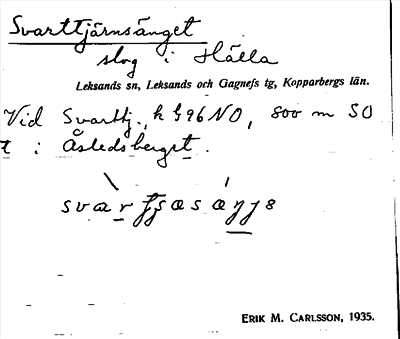 Svarttjärnsänget
slog i Hälla
Leksands sn, Leksands och Gagnefs tg, Kopparbergs län.
Vid Svarttj., k 996 NO, 800 m SO
t i Åsledsberget.
ERIK M. CARLSSON, 1935.